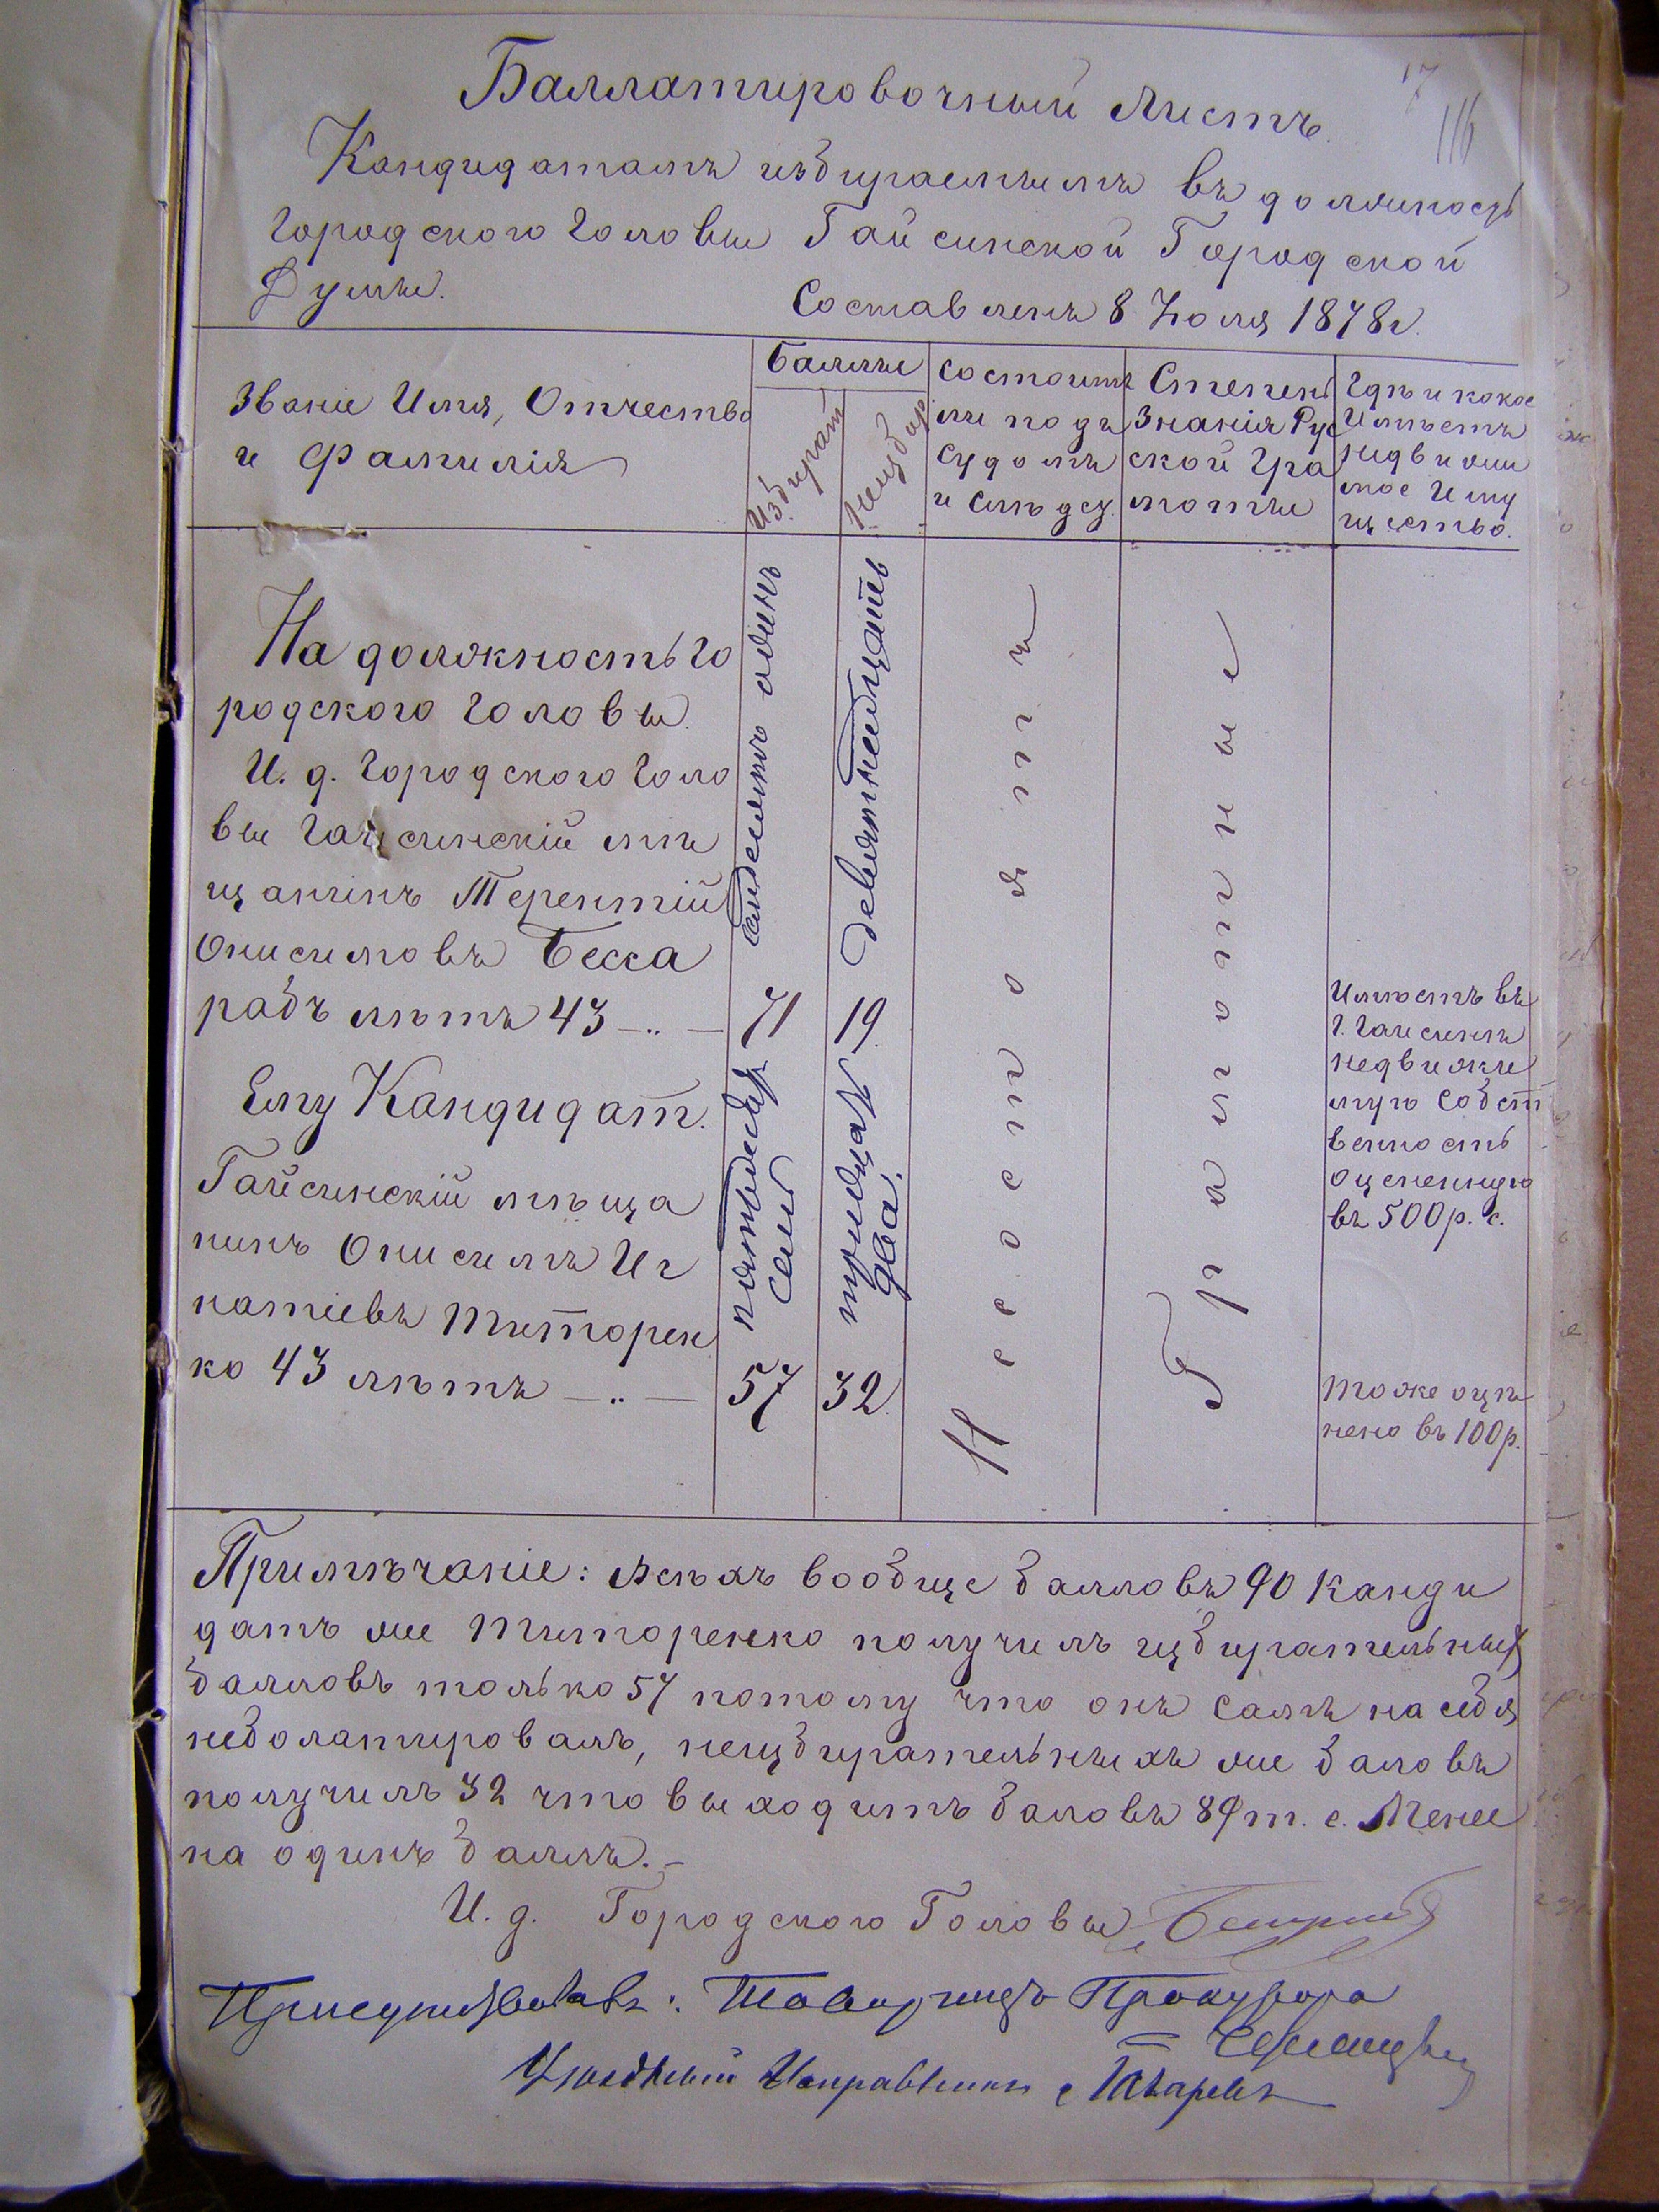 17
116
Баллатировочный Листъ.
Кандидатамъ избираемымъ въ должность
Городского Головы Гайсинской Городской
Думы.
Составленъ 8 Іюля 1878 г.
Званіе Имя, Отчество
и Фамилія
Баллы
Избират
Неизбир
Состоитъ
ли подъ
Судомъ
и слѣдст.
Степень
Знанія Рус
ской Гра
моты
Гдѣ и какое
Имѣетъ
недвижи
мое Иму
щество.
На должность Го
родского Головы
И. д. Городского Голо
вы Гайсинскій мѣ
щанинъ Терентій
Онисимовъ Бесса
рабъ лѣтъ 43 —..—
семдесятъ одинъ
71
девятнадцать
19
Ему Кандидат.
Гайсинскій мѣща
нинъ Онисимъ Иг
натіевъ Титорен
ко 43 лѣтъ —..—
пятьдесят
семь
57
тридцать
два.
32
Не состоятъ
Грамотные
Имѣетъ въ
г. Гайсинѣ
недвижи
мую собст
венность
оцененную
въ 500 р. с.
тоже оцѣ
нено въ 100 р.
Примѣчаніе: Всѣхъ вообще балловъ 90 Канди
датъ же Титоренко получилъ избирательных
балловъ только 57 потому что онъ самъ на себя
небалатировалъ, неизбирательныхъ же баловъ
получилъ 32 что выходитъ баловъ 89 т. е. Менее
на одинъ баллъ. —
И. д. Городского Головы Бессарабъ
Присутствовалъ: Товарищъ Прокурора
Уѣздный Исправникъ